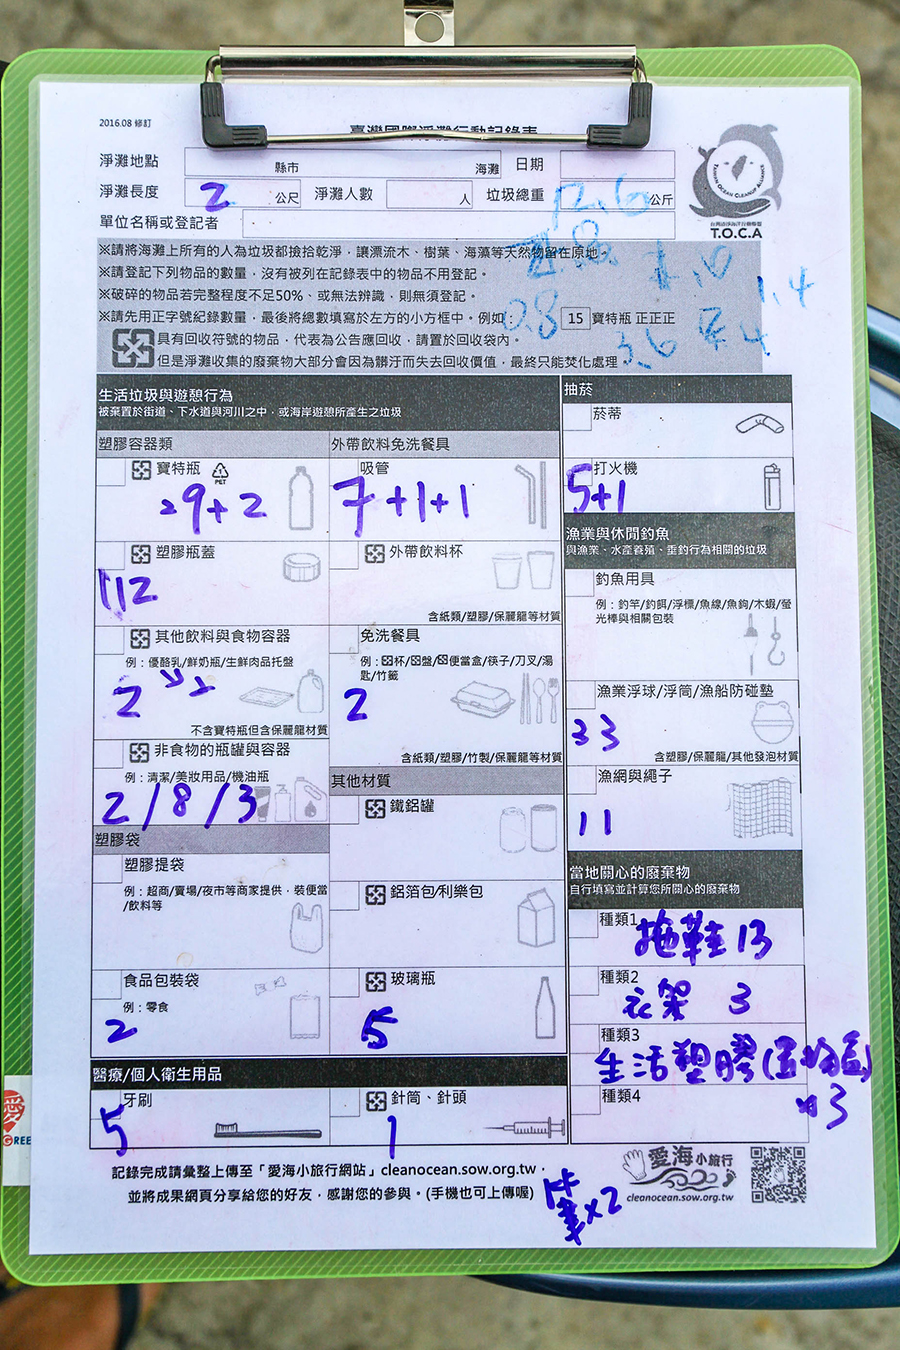 2016.08 修訂
臺灣國際淨灘行動記錄表
淨灘地點 縣市 海灘 日期
淨灘長度 2 公尺 淨灘人數 人 垃圾總重 12.6 公斤
單位名稱或登記者
TAIWAN OCEAN CLEANUP ALLIANCE
T.O.C.A
※請將海灘上所有的人為垃圾都撿拾乾淨，讓漂流木、樹葉、海藻等天然物留在原地。
※請登記下列物品的數量，沒有被列在記錄表中的物品不用登記。
※破碎的物品若完整程度不足50%、或無法辨識，則無須登記。
1.4
※請先用正字號紀錄數量，最後將總數填寫於左方的小方框中。例如： 15 寶特瓶 正正正
0.8
3.6
具有回收符號的物品，代表為公告應回收，請置於回收袋內。
但是淨灘收集的廢棄物大部分會因為髒汙而失去回收價值，最終只能焚化處理
生活垃圾與遊憩行為
被棄置於街道、下水道與河川之中，或海岸遊憩所產生之垃圾
塑膠容器類
寶特瓶
PET
29+2
塑膠瓶蓋
112
其他飲料與食物容器
例：優酪乳/鮮奶瓶/生鮮肉品托盤
2
不含寶特瓶但含保麗龍材質
非食物的瓶罐與容器
例：清潔/美妝用品/機油瓶
2/8/3
塑膠袋
塑膠提袋
例：超商/賣場/夜市等商家提供，裝便當
/飲料等
食品包裝袋
例：零食
2
外帶飲料免洗餐具
吸管
7+1+1
外帶飲料杯
含紙類/塑膠/保麗龍等材質
免洗餐具
例：杯/盤/便當盒/筷子/刀叉/湯
匙/竹籤
2
含紙類/塑膠/竹製/保麗龍等材質
其他材質
鐵鋁罐
鋁箔包/利樂包
玻璃瓶
5
醫療/個人衛生用品
牙刷
5
針筒、針頭
1
抽菸
菸蒂
打火機
5+1
漁業與休閒釣魚
與漁業、水產養殖、垂釣行為相關的垃圾
釣魚用具
例：釣竿/釣餌/浮標/魚線/魚鉤/木蝦/螢
光棒與相關包裝
漁業浮球/浮筒/漁船防碰墊
33
含塑膠/保麗龍/其他發泡材質
漁網與繩子
11
當地關心的廢棄物
自行填寫並計算您所關心的廢棄物
種類1 拖鞋 13
種類2 衣架 3
種類3 生活塑膠(置物盒)
x3
種類4
記錄完成請彙整上傳至「愛海小旅行網站」cleanocean.sow.org.tw，
並將成果網頁分享給您的好友，感謝您的參與。(手機也可上傳喔)
筆x2
愛海小旅行
cleanocean.sow.org.tw
愛
GREE